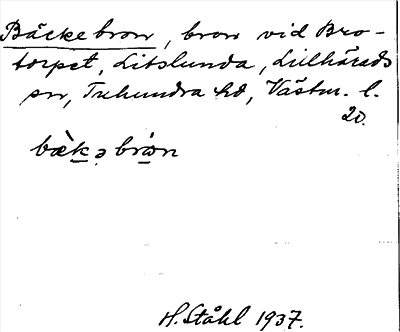 Bäckebron, bron vid Bro-
torpet, Litslunda, Lillhärads
sn, Tuhundra hd, Västm. l.
20.
bæ̀kə brón
H. Ståhl 1937.